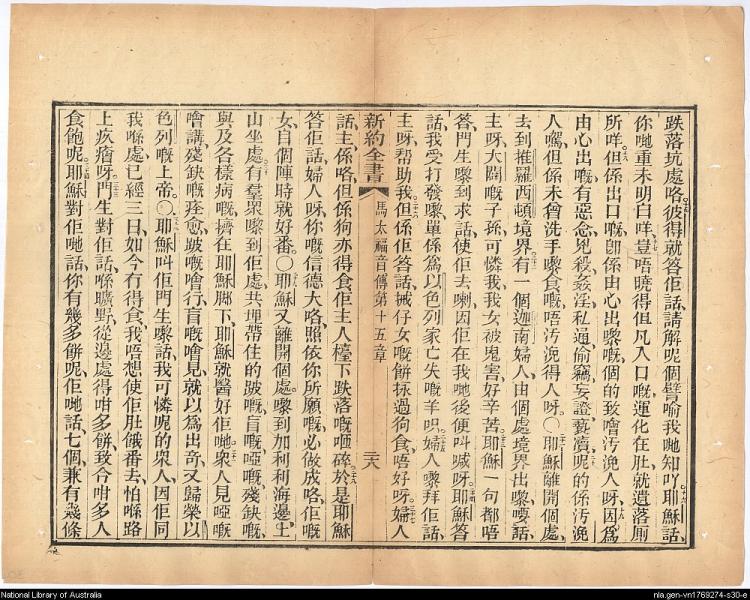 跌落坑處咯彼得就答佢話請解呢個譬喻我哋知吖耶穌話
你哋重未明白咩豈唔曉得但凡入口嘅運化在肚就遺落厠
所咩但係出口嘅卽係由心出嚟嘅個的致噲汚浼人呀因爲
由心出嘅有惡念兇殺姦淫私通偷竊妄證褻瀆呢的係汚浼
人嘅但係未曾洗手嚟食嘅唔汚浼得人呀〇耶穌離開個處
去到推羅西頓境界有一個迦南婦人由個處境界出嚟嗌話
主呀大闢嘅子孫可憐我我女被鬼害好辛苦耶穌一句都唔
答門生嚟到求話使佢去喇因佢在我哋後便呌喊呀耶穌答
話我受打發嚟單係爲以色列家亡失嘅羊呮婦人嚟拜佢話
主呀帮助我但係佢答話搣仔女嘅餅掭過狗食唔好呀婦人
新約全書
馬太福音傳第十五章
二六
話主係咯但係狗亦得食佢主人檯下跌落嘅㕭碎於是耶穌
答佢話婦人呀你嘅信德大咯照依你所願嘅必做成咯佢嘅
女自個陣時就好番〇耶穌又離開個處嚟到加利利海邊上
山坐處有羣衆嚟到佢處共埋帶住的跛嘅盲嘅啞嘅殘缺嘅
與及各樣病嘅擠在耶穌脚下耶穌就醫好佢哋衆人見啞嘅
噲講殘缺嘅痊愈跛嘅噲行盲嘅噲見就以爲出奇又歸榮以
色列嘅上帝〇耶穌呌佢門生嚟話我可憐呢的衆人因佢同
我喺處已經三日如今冇得食我唔想使佢肚餓番去怕喺路
上疚瘡呀門生對佢話喺曠野從邊處得咁多餅致合咁多人
食飽呢耶穌對佢哋話你有幾多餅呢佢哋話七個兼有幾條
National Library of Australia
nla.gen-vn1769274-s30-e